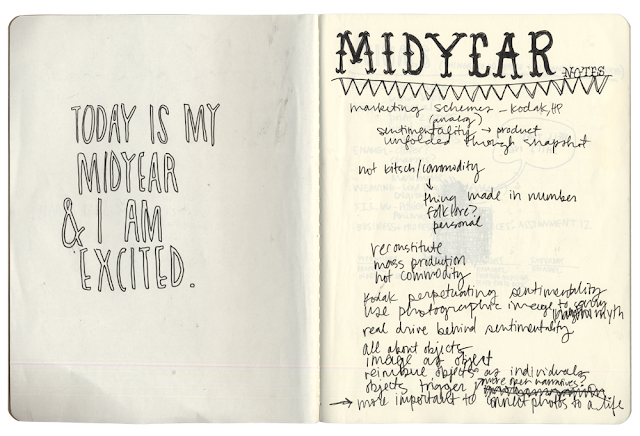 TODAY IS MY
MIDYEAR
& I AM
EXCITED.
MIDYEAR NOTES
marketing schemes - Kodak, HP
(analog)
sentimentality → product
unfolded through snapshot
not kitsch/commodity
↓
thing made in number
folklore?
personal
reconstitute
mass production
not commodity
Kodak perpetuating sentimentality
use photographic image to
myth
real drive behind sentimentality
all about objects
image as object
reimbue objects as individuals
objects trigger
more open narratives?
→ more important to connect photos to a life